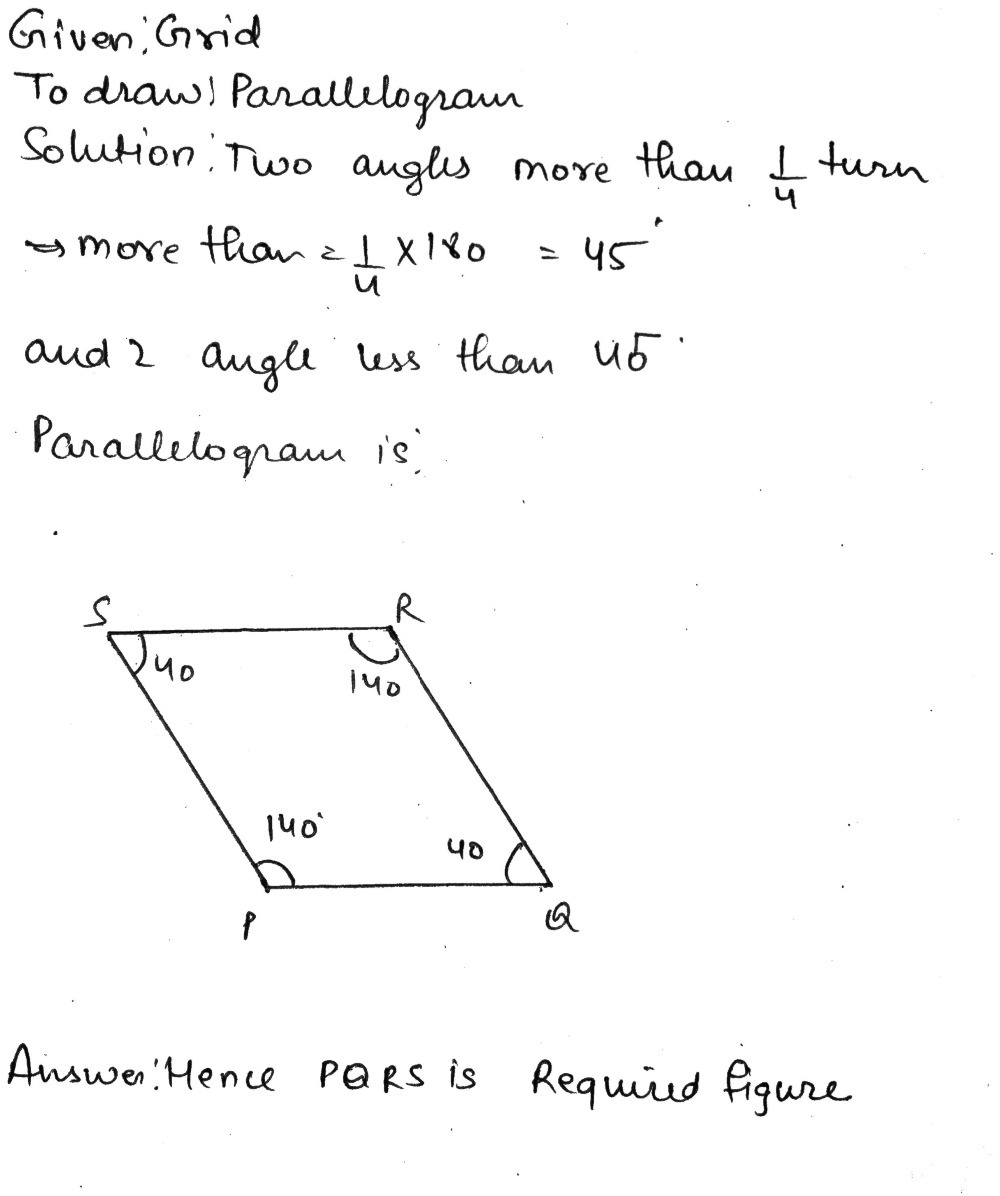 Given: Grid
To draw: Parallelogram
Solution: Two angles more than 1/4 turn
→ more than = 1/4 X 180 = 45°
and 2 angle less than 45°
Parallelogram is:
S R
40 140
140° 40
P Q
Answer: Hence PQRS is Required figure